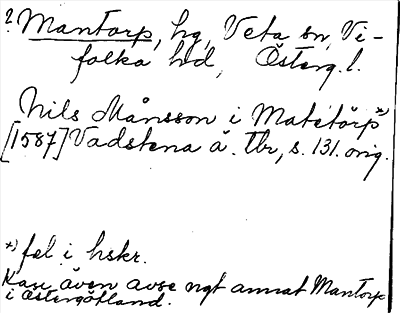 ? Mantorp, hg, Veta sn, Vi-
folka hd, Österg. l.
Nils Månsson i Matétörp*)
[1587] Vadstena ä. Tbr, s. 131. orig.
*) fel i hskr.
Kan även avse ngt annat Mantorp
i Östergötland.